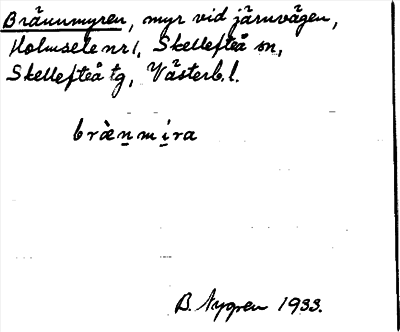 Brännmyren, myr vid järnvägen,
Holmsele nr 1, Skellefteå sn,
Skellefteå tg, Västerb. l.
bræ̀n̲m í̲ra
B. Nygren 1933.